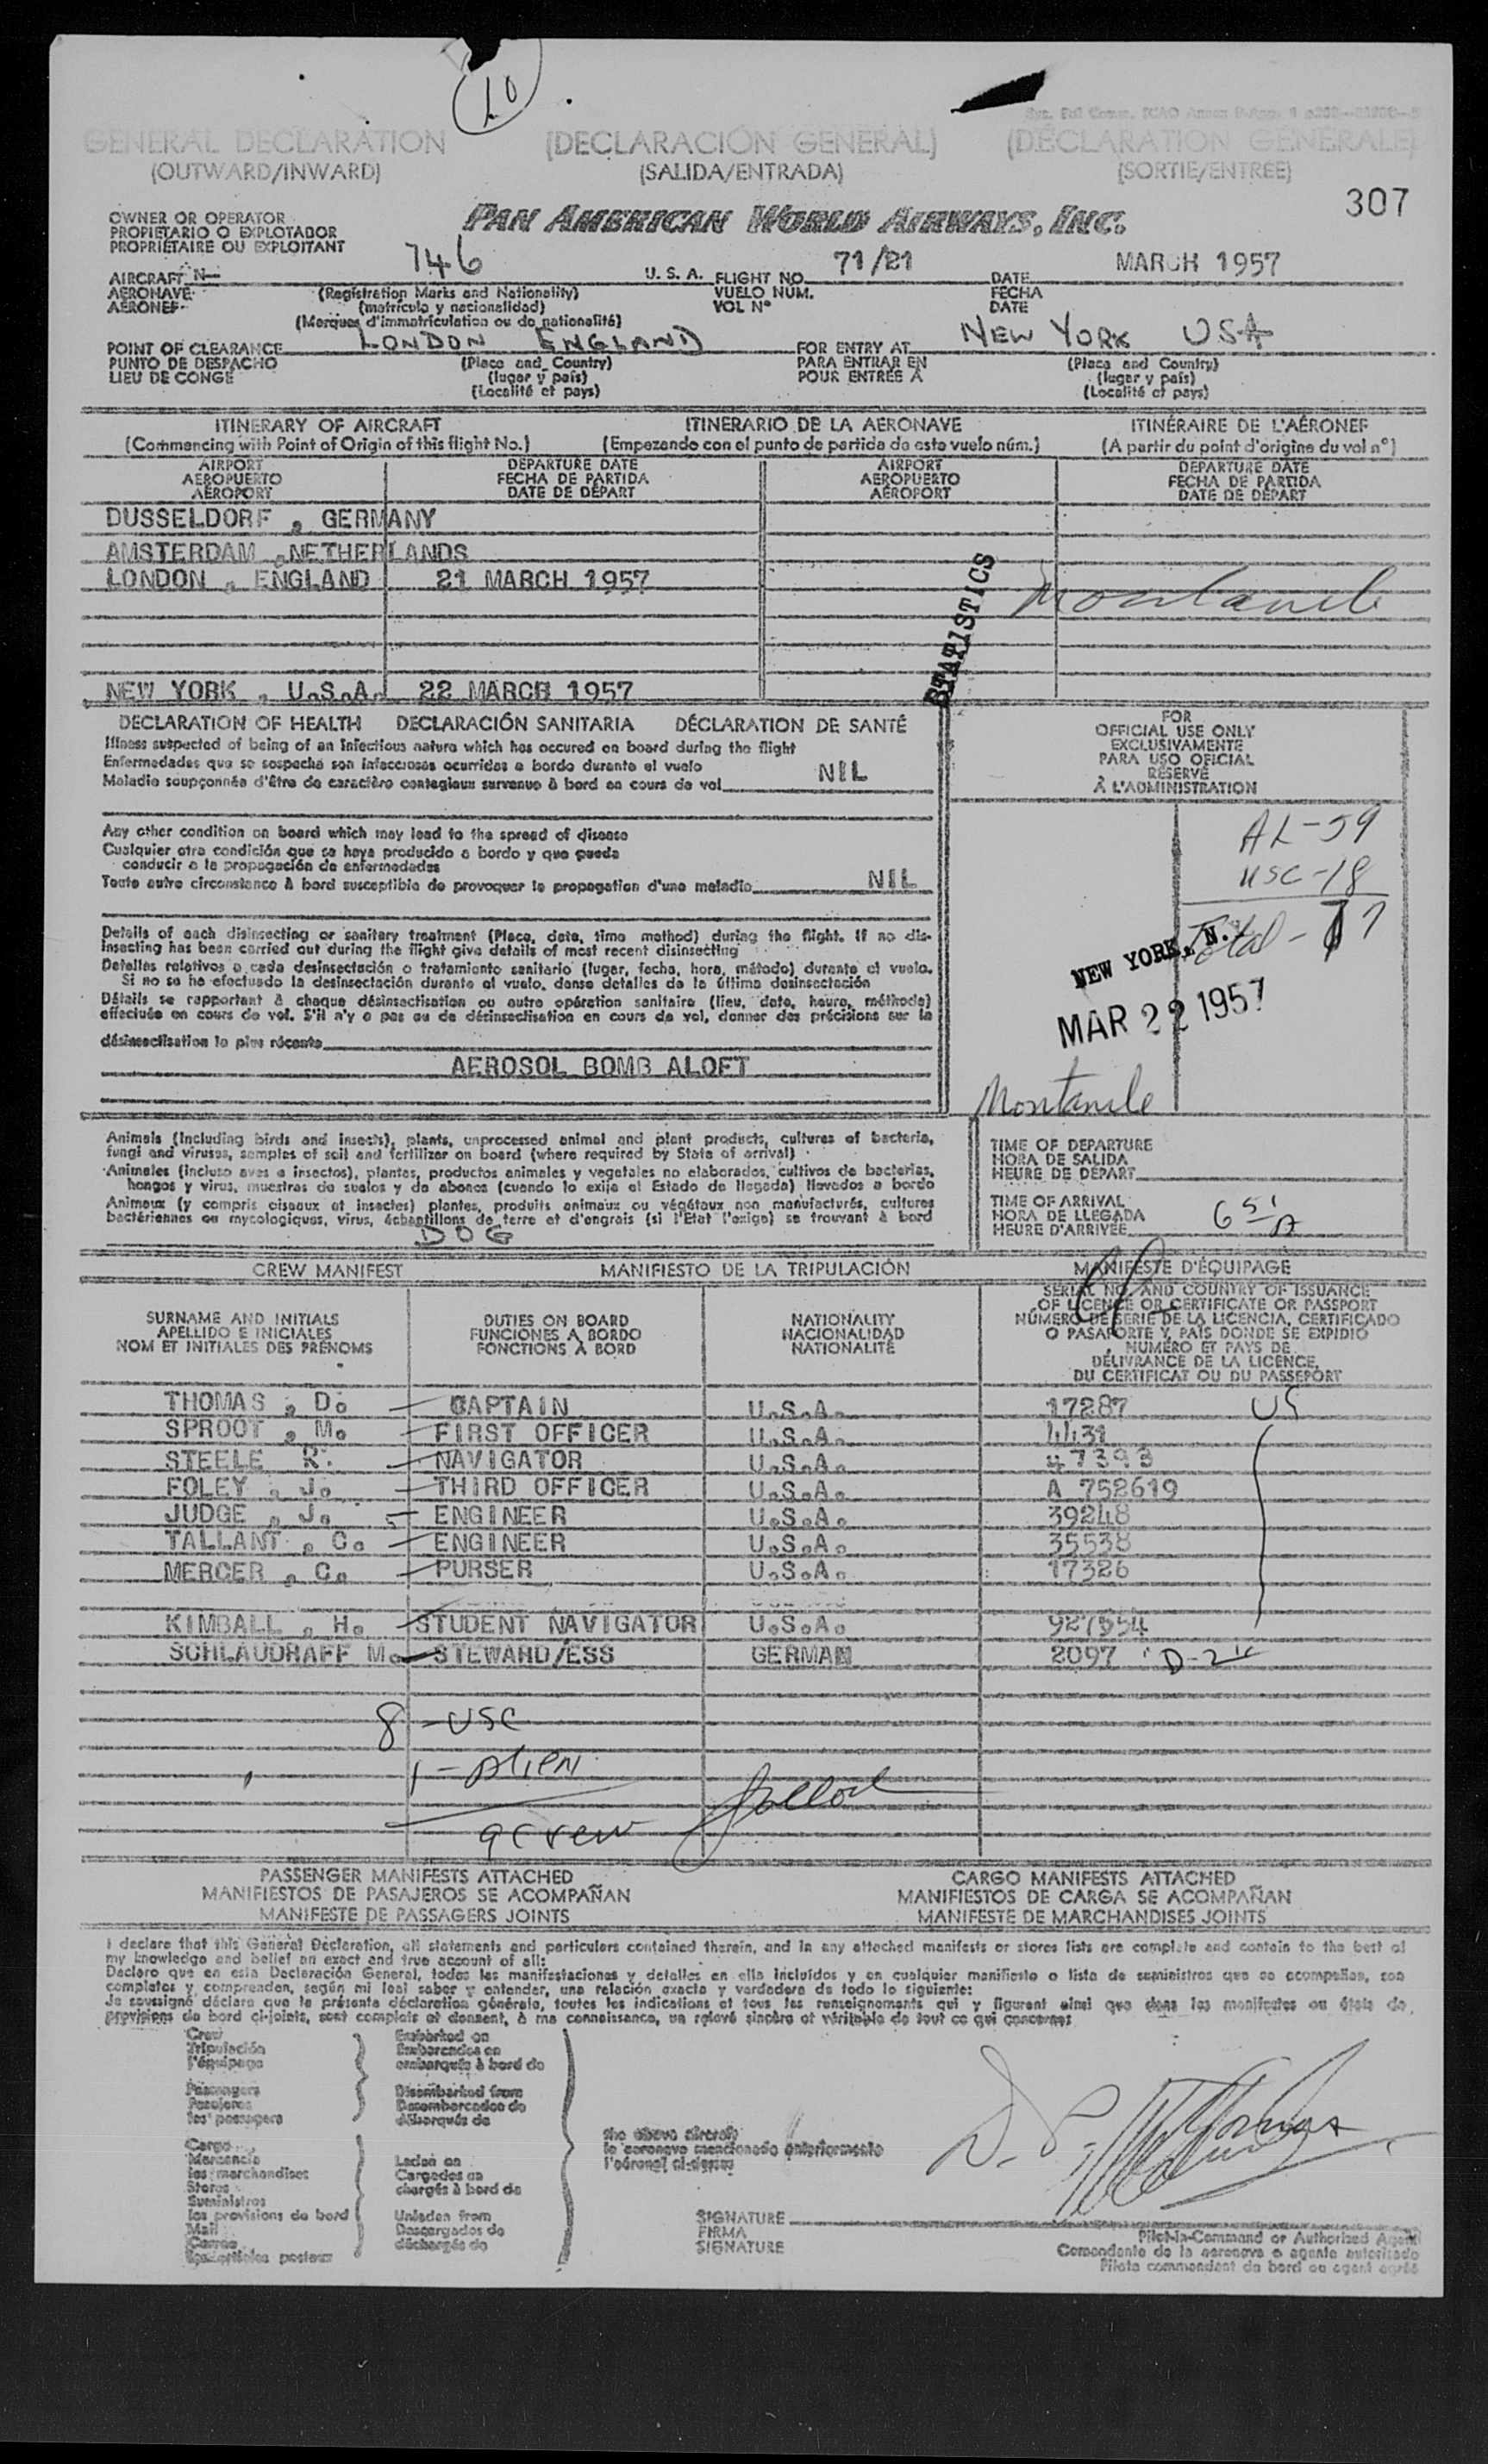 10
GENERAL DECLARATION
(OUTWARD/INWARD)
(DECLARACIÓN GENERAL)
(SALIDA/ENTRADA)
(DÉCLARATION GÉNÉRALE)
(SORTIE/ENTRÉE)
307
OWNER OR OPERATOR
PROPIETARIO O EXPLOTADOR
PROPRIÉTAIRE OU EXPLOITANT
PAN AMERICAN WORLD AIRWAYS, INC.
AIRCRAFT N- 746 U. S. A. FLIGHT NO. 71/21 DATE MARCH 1957
AERONAVE (Registration Marks and Nationality) VUELO NÚM. FECHA
AÉRONEF (matrícula y nacionalidad) VOL Nº DATE
(Marques d'immatriculation ou de nationalité)
POINT OF CLEARANCE LONDON ENGLAND FOR ENTRY AT NEW YORK USA
PUNTO DE DESPACHO (Place and Country) PARA ENTRAR EN (Place and Country)
LIEU DE CONGÉ (lugar y país) POUR ENTRÉE À (lugar y país)
(Localité et pays) (Localité et pays)
ITINERARY OF AIRCRAFT ITINERARIO DE LA AERONAVE ITINÉRAIRE DE L'AÉRONEF
(Commencing with Point of Origin of this flight No.) (Empezando con el punto de partida de este vuelo núm.) (A partir du point d'origine du vol nº)
AIRPORT DEPARTURE DATE AIRPORT DEPARTURE DATE
AEROPUERTO FECHA DE PARTIDA AEROPUERTO FECHA DE PARTIDA
AÉROPORT DATE DE DÉPART AÉROPORT DATE DE DÉPART
DUSSELDORF , GERMANY
AMSTERDAM , NETHERLANDS
LONDON , ENGLAND 21 MARCH 1957
STATISTICS
Montanile
NEW YORK , U.S.A. 22 MARCH 1957
DECLARATION OF HEALTH DECLARACIÓN SANITARIA DÉCLARATION DE SANTÉ
Illness suspected of being of an infectious nature which has occured on board during the flight
Enfermedades que se sospecha son infecciosas ocurridas a bordo durante el vuelo
Maladie soupçonnée d'être de caractère contagieux survenue à bord en cours de vol NIL
Any other condition on board which may lead to the spread of disease
Cualquier otra condición que se haya producido a bordo y que pueda
conducir a la propagación de enfermedades
Toute autre circonstance à bord susceptible de provoquer la propagation d'une maladie NIL
Details of each disinsecting or sanitary treatment (Place, date, time method) during the flight. If no dis-
insecting has been carried out during the flight give details of most recent disinsecting
Detalles relativos a cada desinsectación o tratamiento sanitario (lugar, fecha, hora, método) durante el vuelo.
Si no se ha efectuado la desinsectación durante el vuelo, danse detalles de la última desinsectación
Détails se rapportant à chaque désinsectisation ou autre opération sanitaire (lieu, date, heure, méthode)
effectuée en cours de vol. S'il n'y a pas eu de désinsectisation en cours de vol, donner des précisions sur la
désinsectisation la plus récente
AEROSOL BOMB ALOFT
FOR
OFFICIAL USE ONLY
EXCLUSIVAMENTE
PARA USO OFICIAL
RÉSERVÉ
À L'ADMINISTRATION
AL-59
USC-18
Total - 77
NEW YORK, N.Y.
MAR 22 1957
Montanile
Animals (including birds and insects), plants, unprocessed animal and plant products, cultures of bacteria,
fungi and viruses, samples of soil and fertilizer on board (where required by State of arrival)
Animales (incluso aves e insectos), plantas, productos animales y vegetales no elaborados, cultivos de bacterias,
hongos y virus, muestras de suelos y de abonos (cuando lo exija el Estado de llegada) llevados a bordo
Animaux (y compris oiseaux et insectes) plantes, produits animaux ou végétaux non manufacturés, cultures
bactériennes ou mycologiques, virus, échantillons de terre et d'engrais (si l'Etat l'exige) se trouvant à bord
DOG
TIME OF DEPARTURE
HORA DE SALIDA
HEURE DE DÉPART
TIME OF ARRIVAL
HORA DE LLEGADA
HEURE D'ARRIVÉE 651 A
CREW MANIFEST MANIFIESTO DE LA TRIPULACIÓN MANIFESTE D'ÉQUIPAGE
SURNAME AND INITIALS
APELLIDO E INICIALES
NOM ET INITIALES DES PRÉNOMS
DUTIES ON BOARD
FUNCIONES A BORDO
FONCTIONS À BORD
NATIONALITY
NACIONALIDAD
NATIONALITÉ
SERIAL NO. AND COUNTRY OF ISSUANCE
OF LICENCE OR CERTIFICATE OR PASSPORT
NÚMERO DE SERIE DE LA LICENCIA, CERTIFICADO
O PASAPORTE Y PAÍS DONDE SE EXPIDIÓ
NUMÉRO ET PAYS DE
DÉLIVRANCE DE LA LICENCE,
DU CERTIFICAT OU DU PASSEPORT
THOMAS , D. CAPTAIN U.S.A. 17287 US
SPROOT , M. FIRST OFFICER U.S.A. 4431
STEELE R. NAVIGATOR U.S.A. 47393
FOLEY , J. THIRD OFFICER U.S.A. A 752619
JUDGE , J. ENGINEER U.S.A. 39248
TALLANT , C. ENGINEER U.S.A. 35538
MERCER , C. PURSER U.S.A. 17326
KIMBALL , H. STUDENT NAVIGATOR U.S.A. 927554
SCHLAUDRAFF M. STEWARD/ESS GERMAN 2097 D-2
8 - USC
1 - Alien
9 crew
PASSENGER MANIFESTS ATTACHED
MANIFIESTOS DE PASAJEROS SE ACOMPAÑAN
MANIFESTE DE PASSAGERS JOINTS
CARGO MANIFESTS ATTACHED
MANIFIESTOS DE CARGA SE ACOMPAÑAN
MANIFESTE DE MARCHANDISES JOINTS
I declare that this General Declaration, all statements and particulars contained therein, and in any attached manifests or stores lists are complete and contain to the best of
my knowledge and belief an exact and true account of all:
Declaro que en esta Declaración General, todas las manifestaciones y detalles en ella incluídos y en cualquier manifiesto o lista de suministros que se acompañan, son
completos y comprenden, según mi leal saber y entender, una relación exacta y verdadera de todo lo siguiente:
Je soussigné déclare que la présente déclaration générale, toutes les indications et tous les renseignements qui y figurent ainsi que dans les manifestes ou états de
provisions de bord ci-joints, sont complets et donnent, à ma connaissance, un relevé sincère et véritable de tout ce qui concerne:
Crew
Tripulación
l'équipage
Passengers
Pasajeros
les passagers
Cargo
Mercancía
les marchandises
Stores
Suministros
les provisions de bord
Mail
Correo
les articles postaux
Embarked on
Embarcados en
embarqués à bord de
Disembarked from
Desembarcados de
débarqués de
Laden on
Cargados en
chargés à bord de
Unladen from
Descargados de
déchargés de
the above aircraft
la aeronave mencionada anteriormente
l'aéronef ci-dessus
SIGNATURE
FIRMA
SIGNATURE
Pilot-in-Command or Authorized Agent
Comandante de la aeronave o agente autorizado
Pilote commandant de bord ou agent agréé